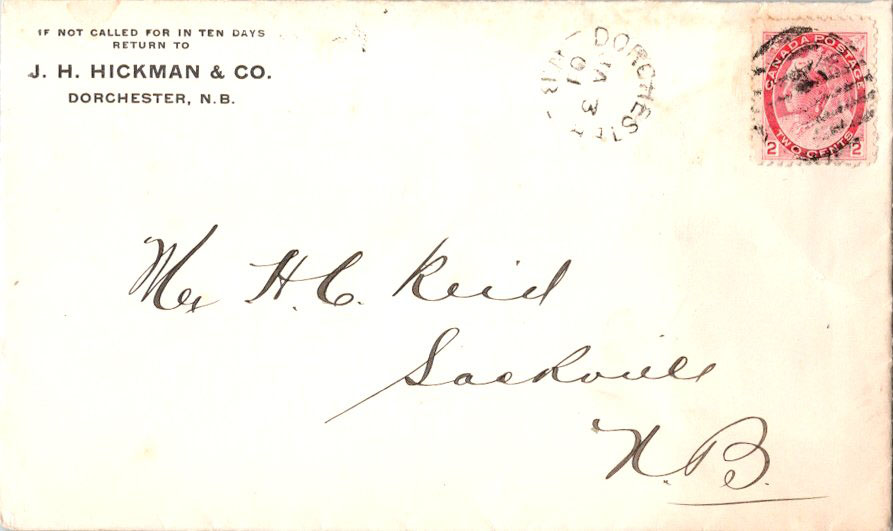 IF NOT CALLED FOR IN TEN DAYS
RETURN TO
J. H. HICKMAN & CO.
DORCHESTER, N.B.
DORCHESTER
JA 3
01
N.B
CANADA POSTAGE
TWO CENTS
2 2
Mr H. C. Reid
Sackville
N.B.